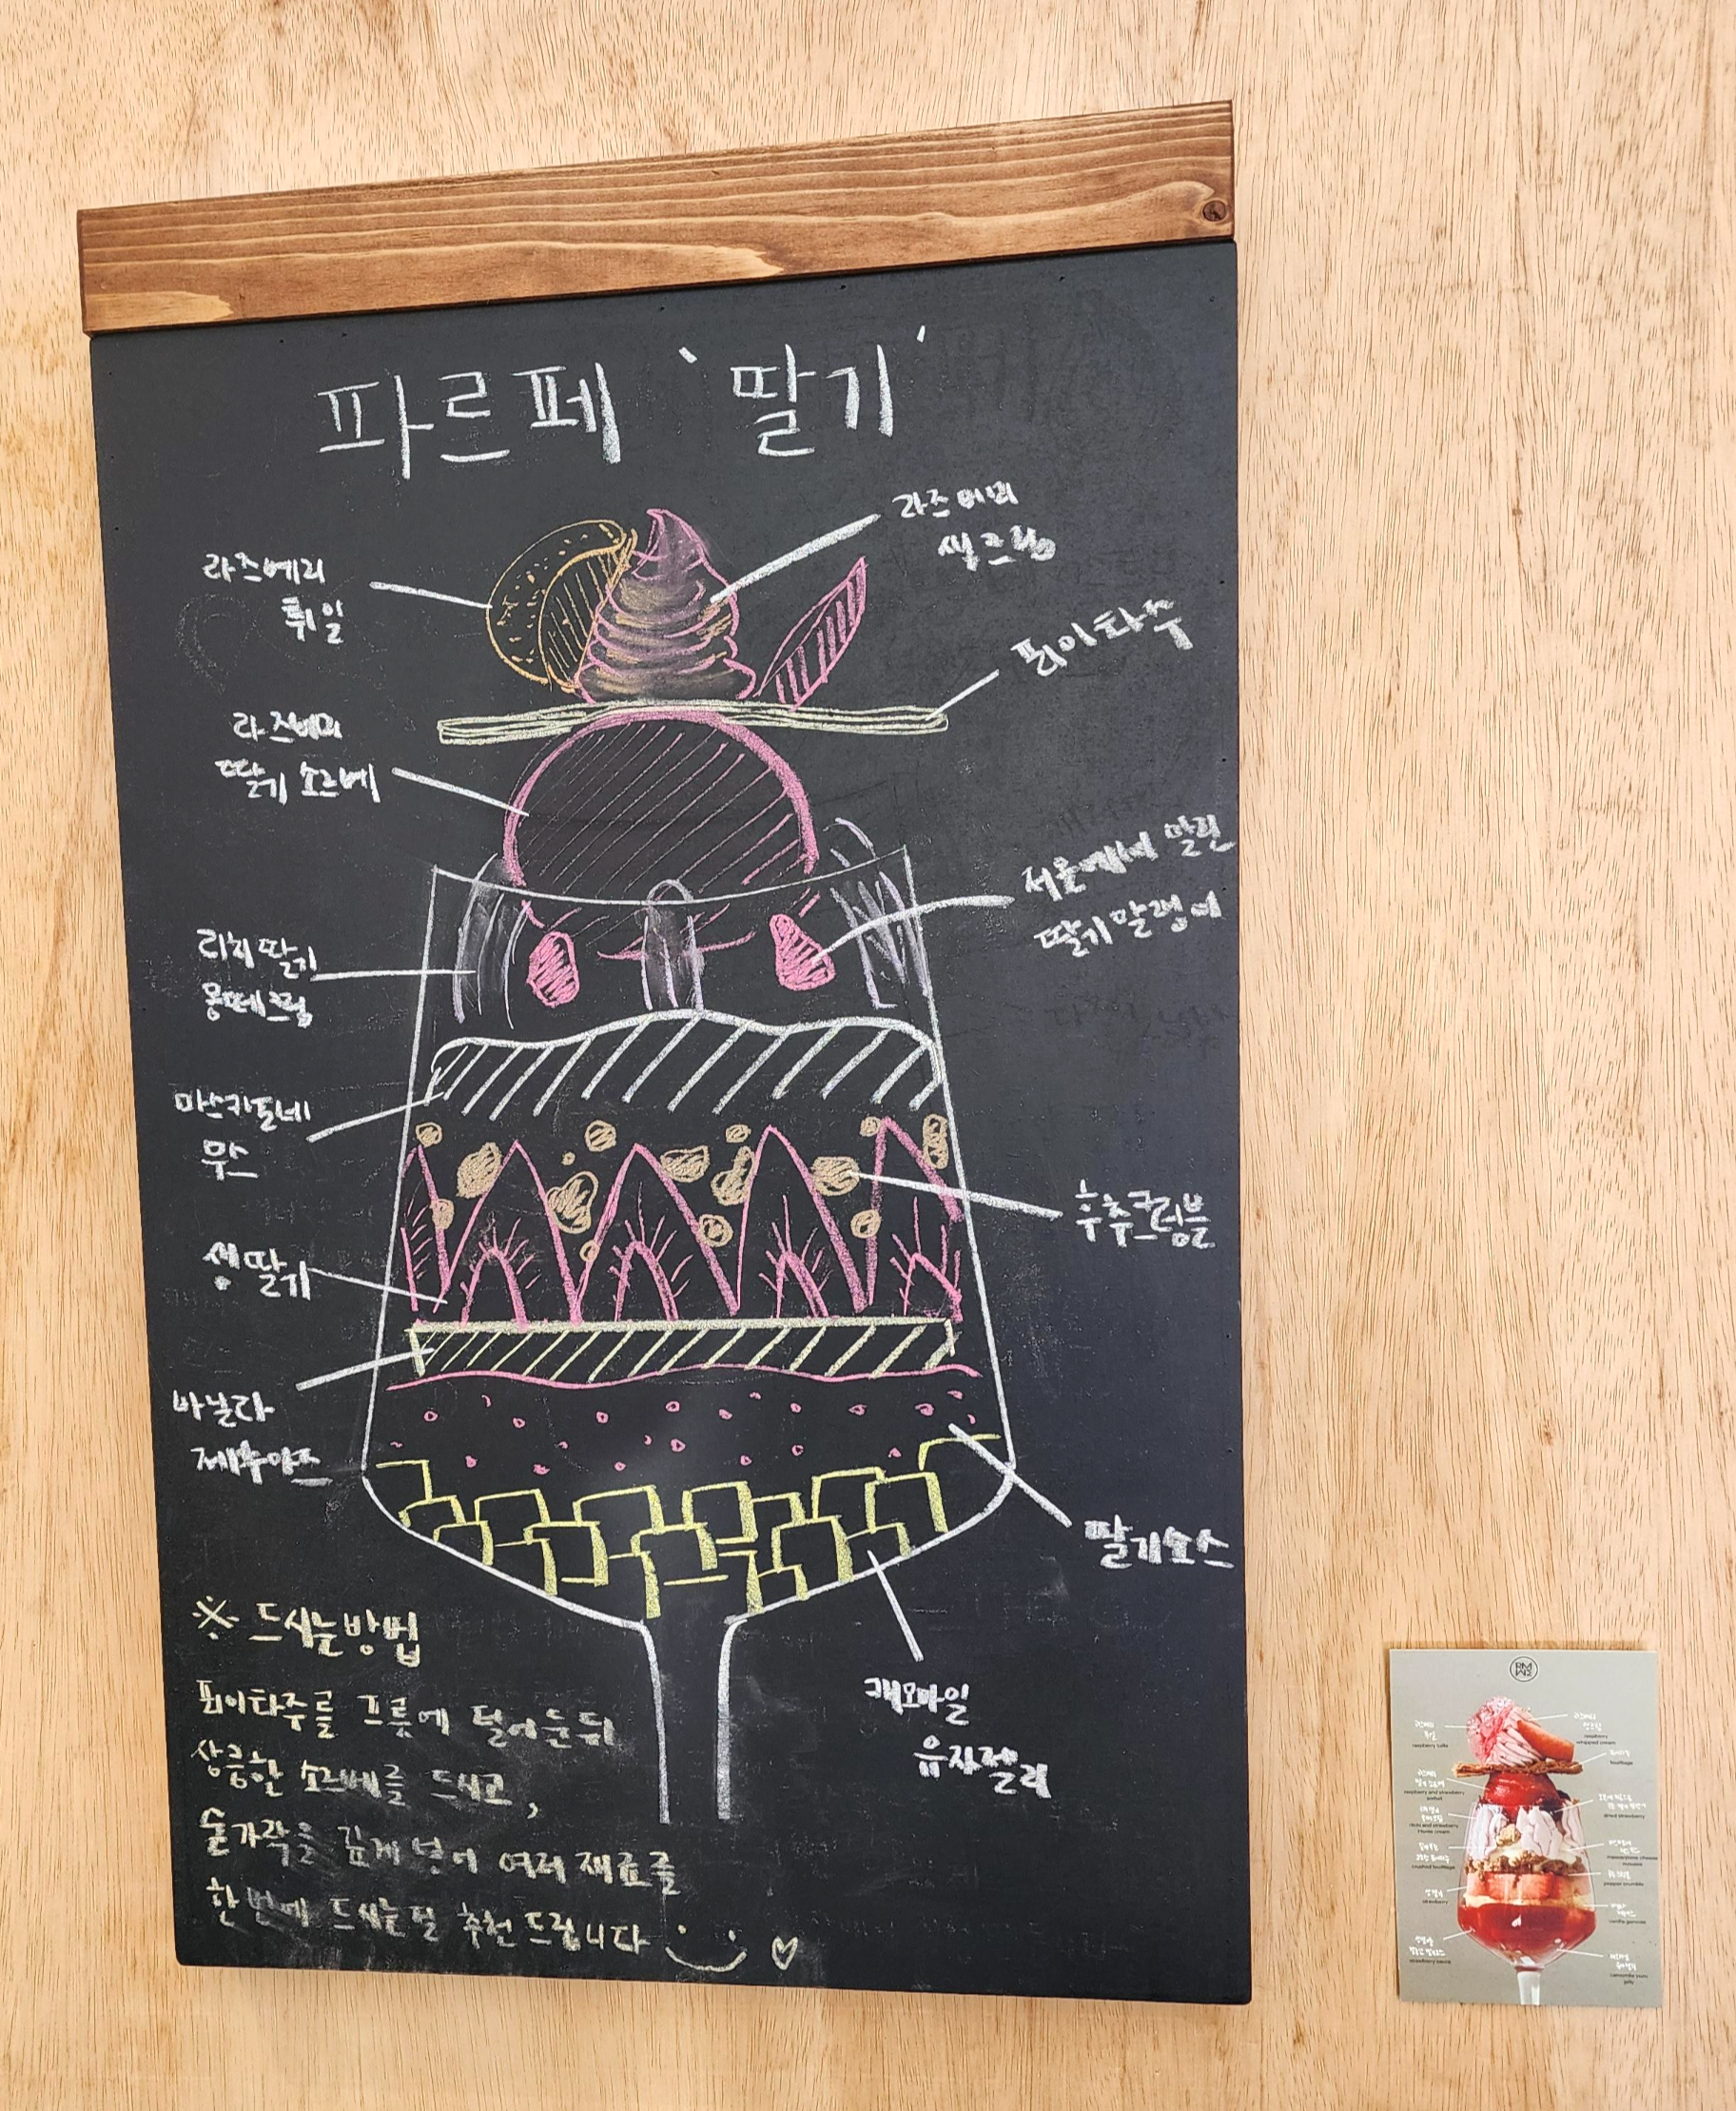 파르페 '딸기'
라즈베리
휩크림
라즈베리
튀일
푀이타주
라즈베리
딸기 소르베
서울에서 말린
딸기말랭이
리치딸기
몽떼크림
마스카포네
무스
후추크럼블
생딸기
바닐라
제누와즈
딸기소스
캐모마일
유자젤리
※ 드시는방법
푀이타주를 그릇에 덜어둔뒤
상큼한 소르베를 드시고,
숟가락을 깊게 넣어 여러 재료를
한번에 드시는걸 추천드립니다
raspberry tuille
raspberry
whipped cream
feuilletage
raspberry and strawberry
sorbet
dried strawberry
crushed feuilletage
pepper crumble
strawberry
vanilla genoise
strawberry sauce
jelly